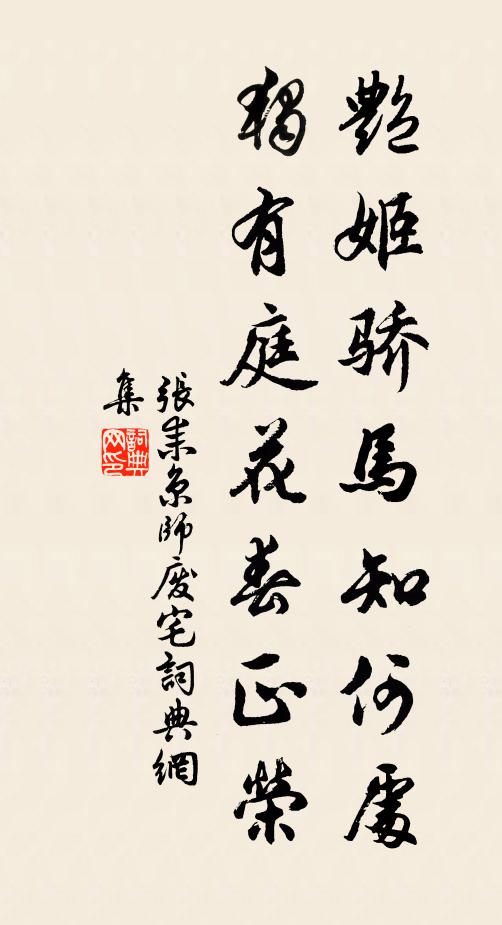 艷姬驕馬知何處
獨有庭花春正榮
張耒京師廢宅詞典網
集
詞典
网印